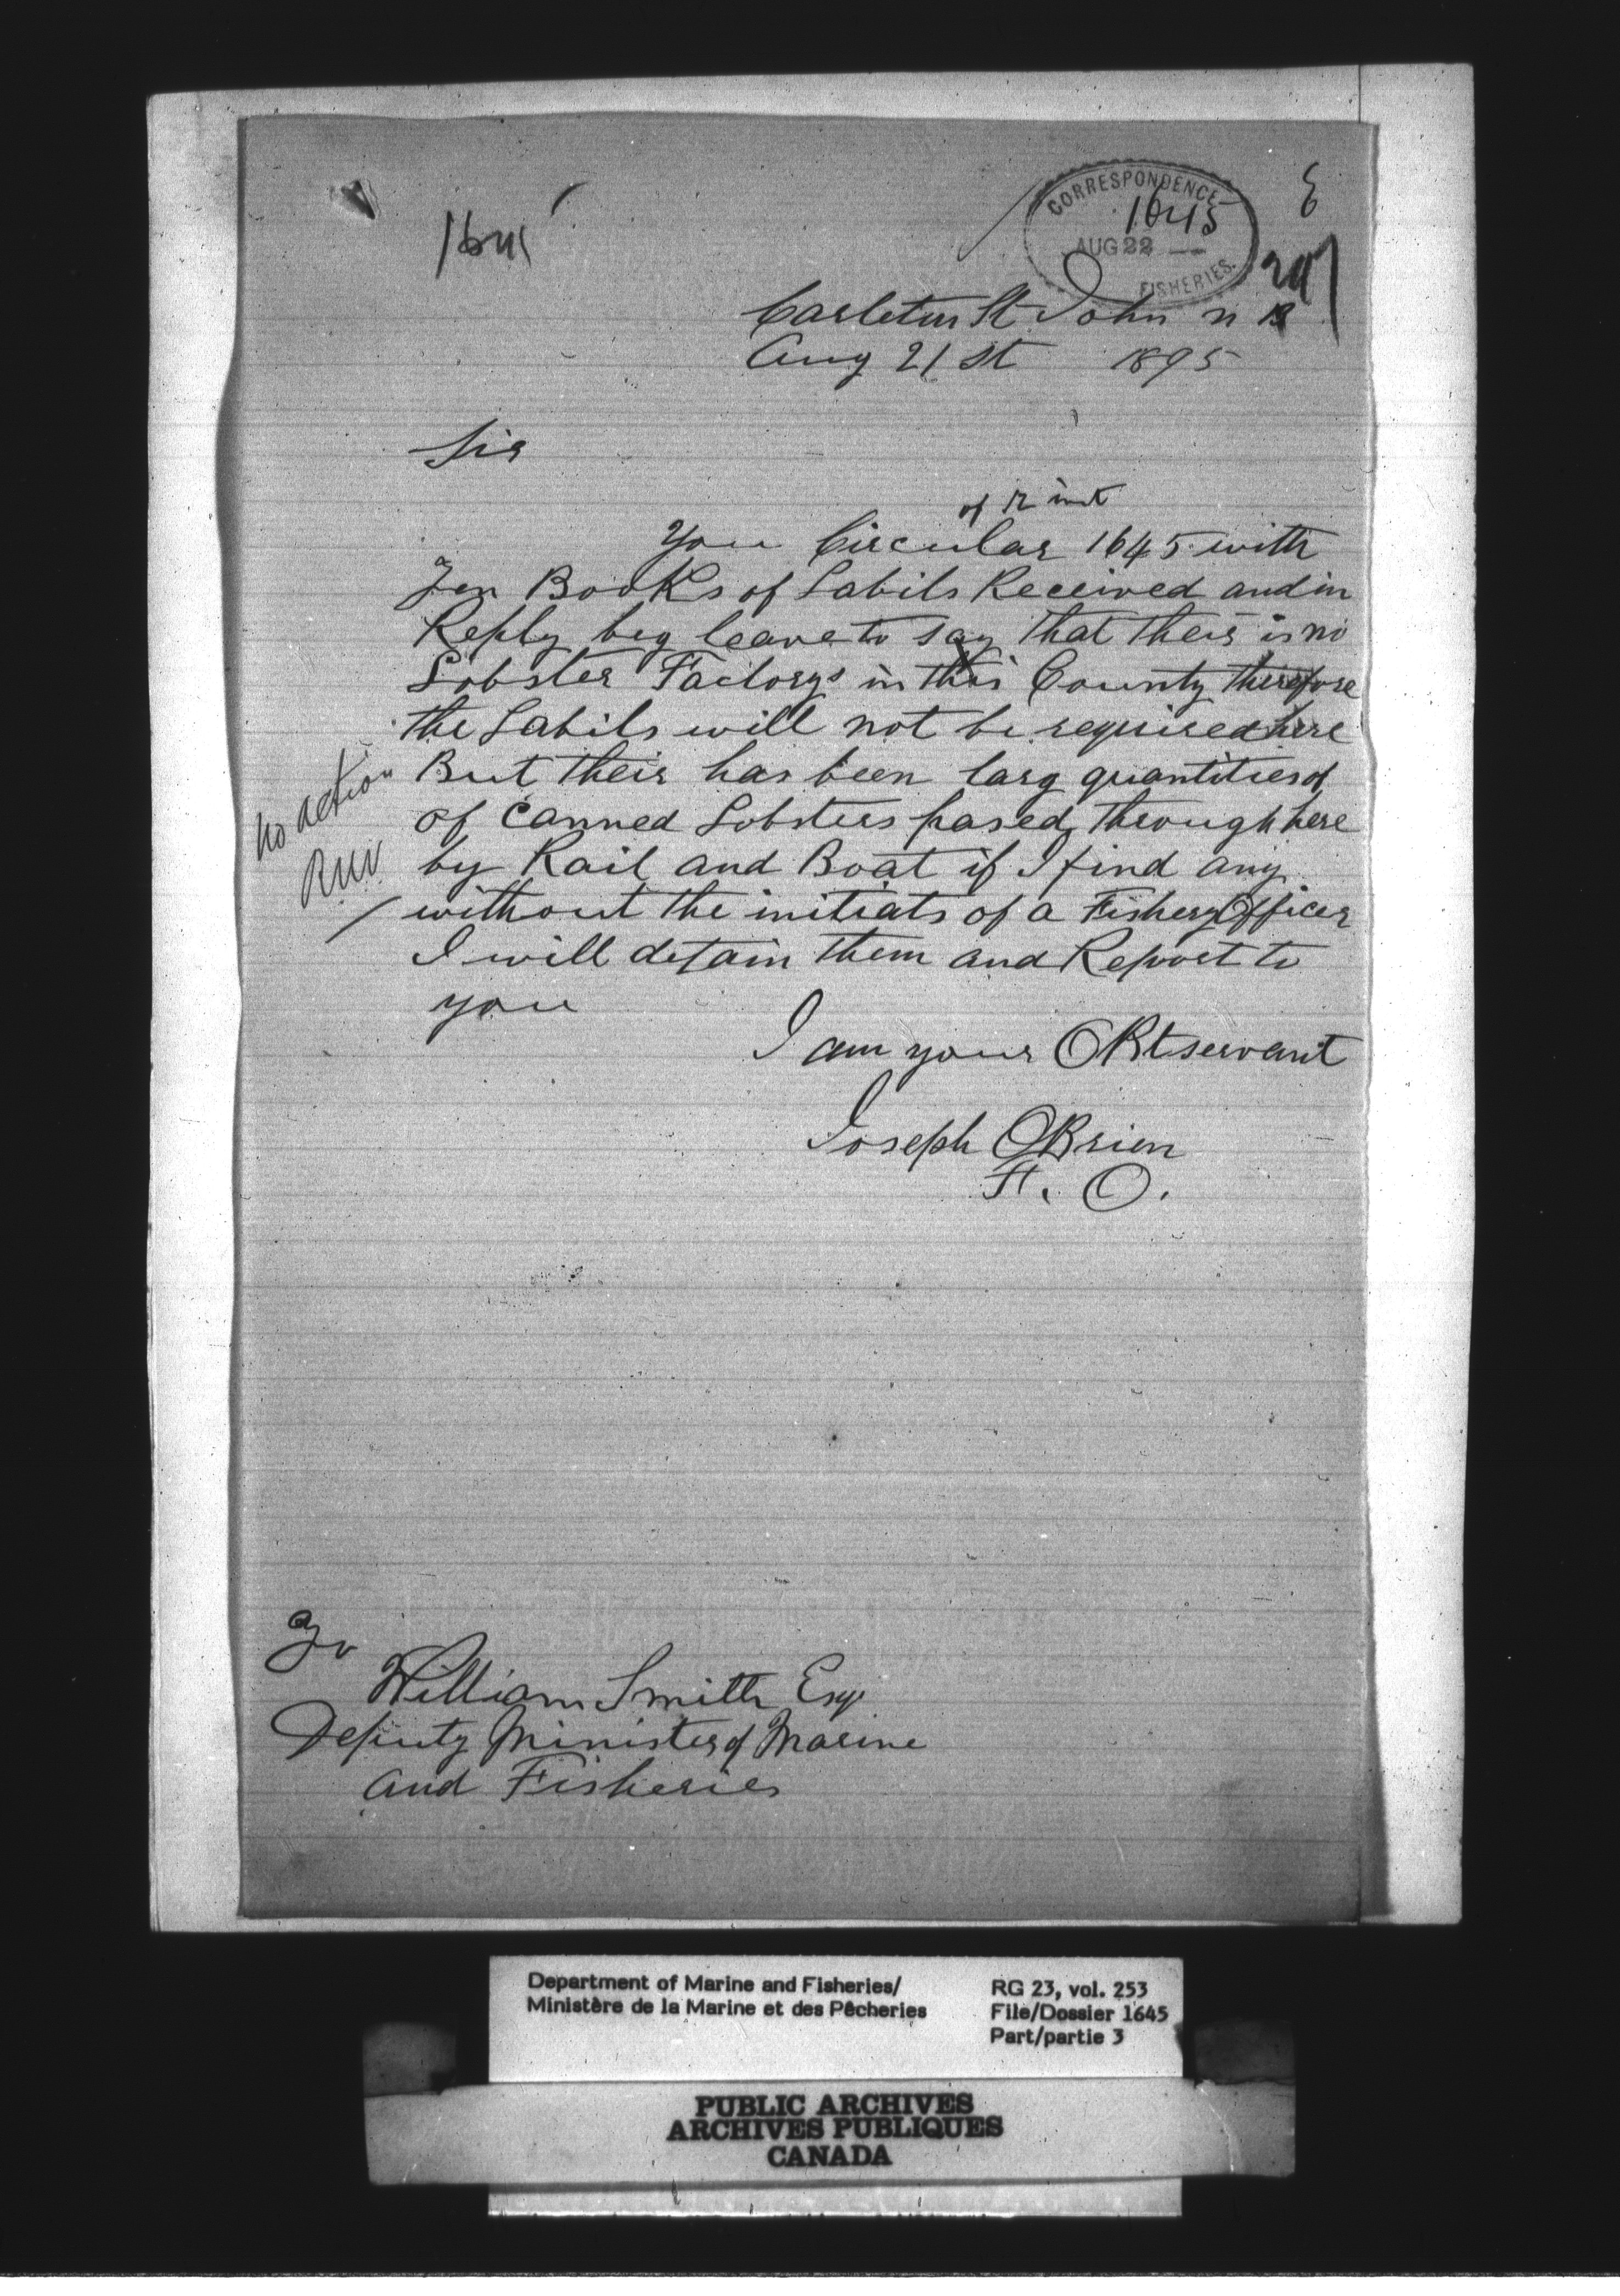 1645
CORRESPONDENCE
1645
AUG 22
FISHERIES.
E
Carleton St John N B
Aug 21 st 1895
Sir
of 12 inst
You Circular 1645 with
Ten Books of Labils Received and in
Reply beg leave to say that their is no
Lobster Factorys in this County therefore
the Labils will not be required here
But their has been larg quantities of
of Canned Lobsters pased through here
by Rail and Boat if I find any
without the initials of a Fishery Officer
I will detain them and Report to
you
no action
I am your OBt servant
Joseph OBrien
F. O.
To
William Smith Esq
Deputy Minister of Marine
and Fisheries
Department of Marine and Fisheries/
Ministère de la Marine et des Pêcheries
RG 23, vol. 253
File/Dossier 1645
Part/partie 3
PUBLIC ARCHIVES
ARCHIVES PUBLIQUES
CANADA